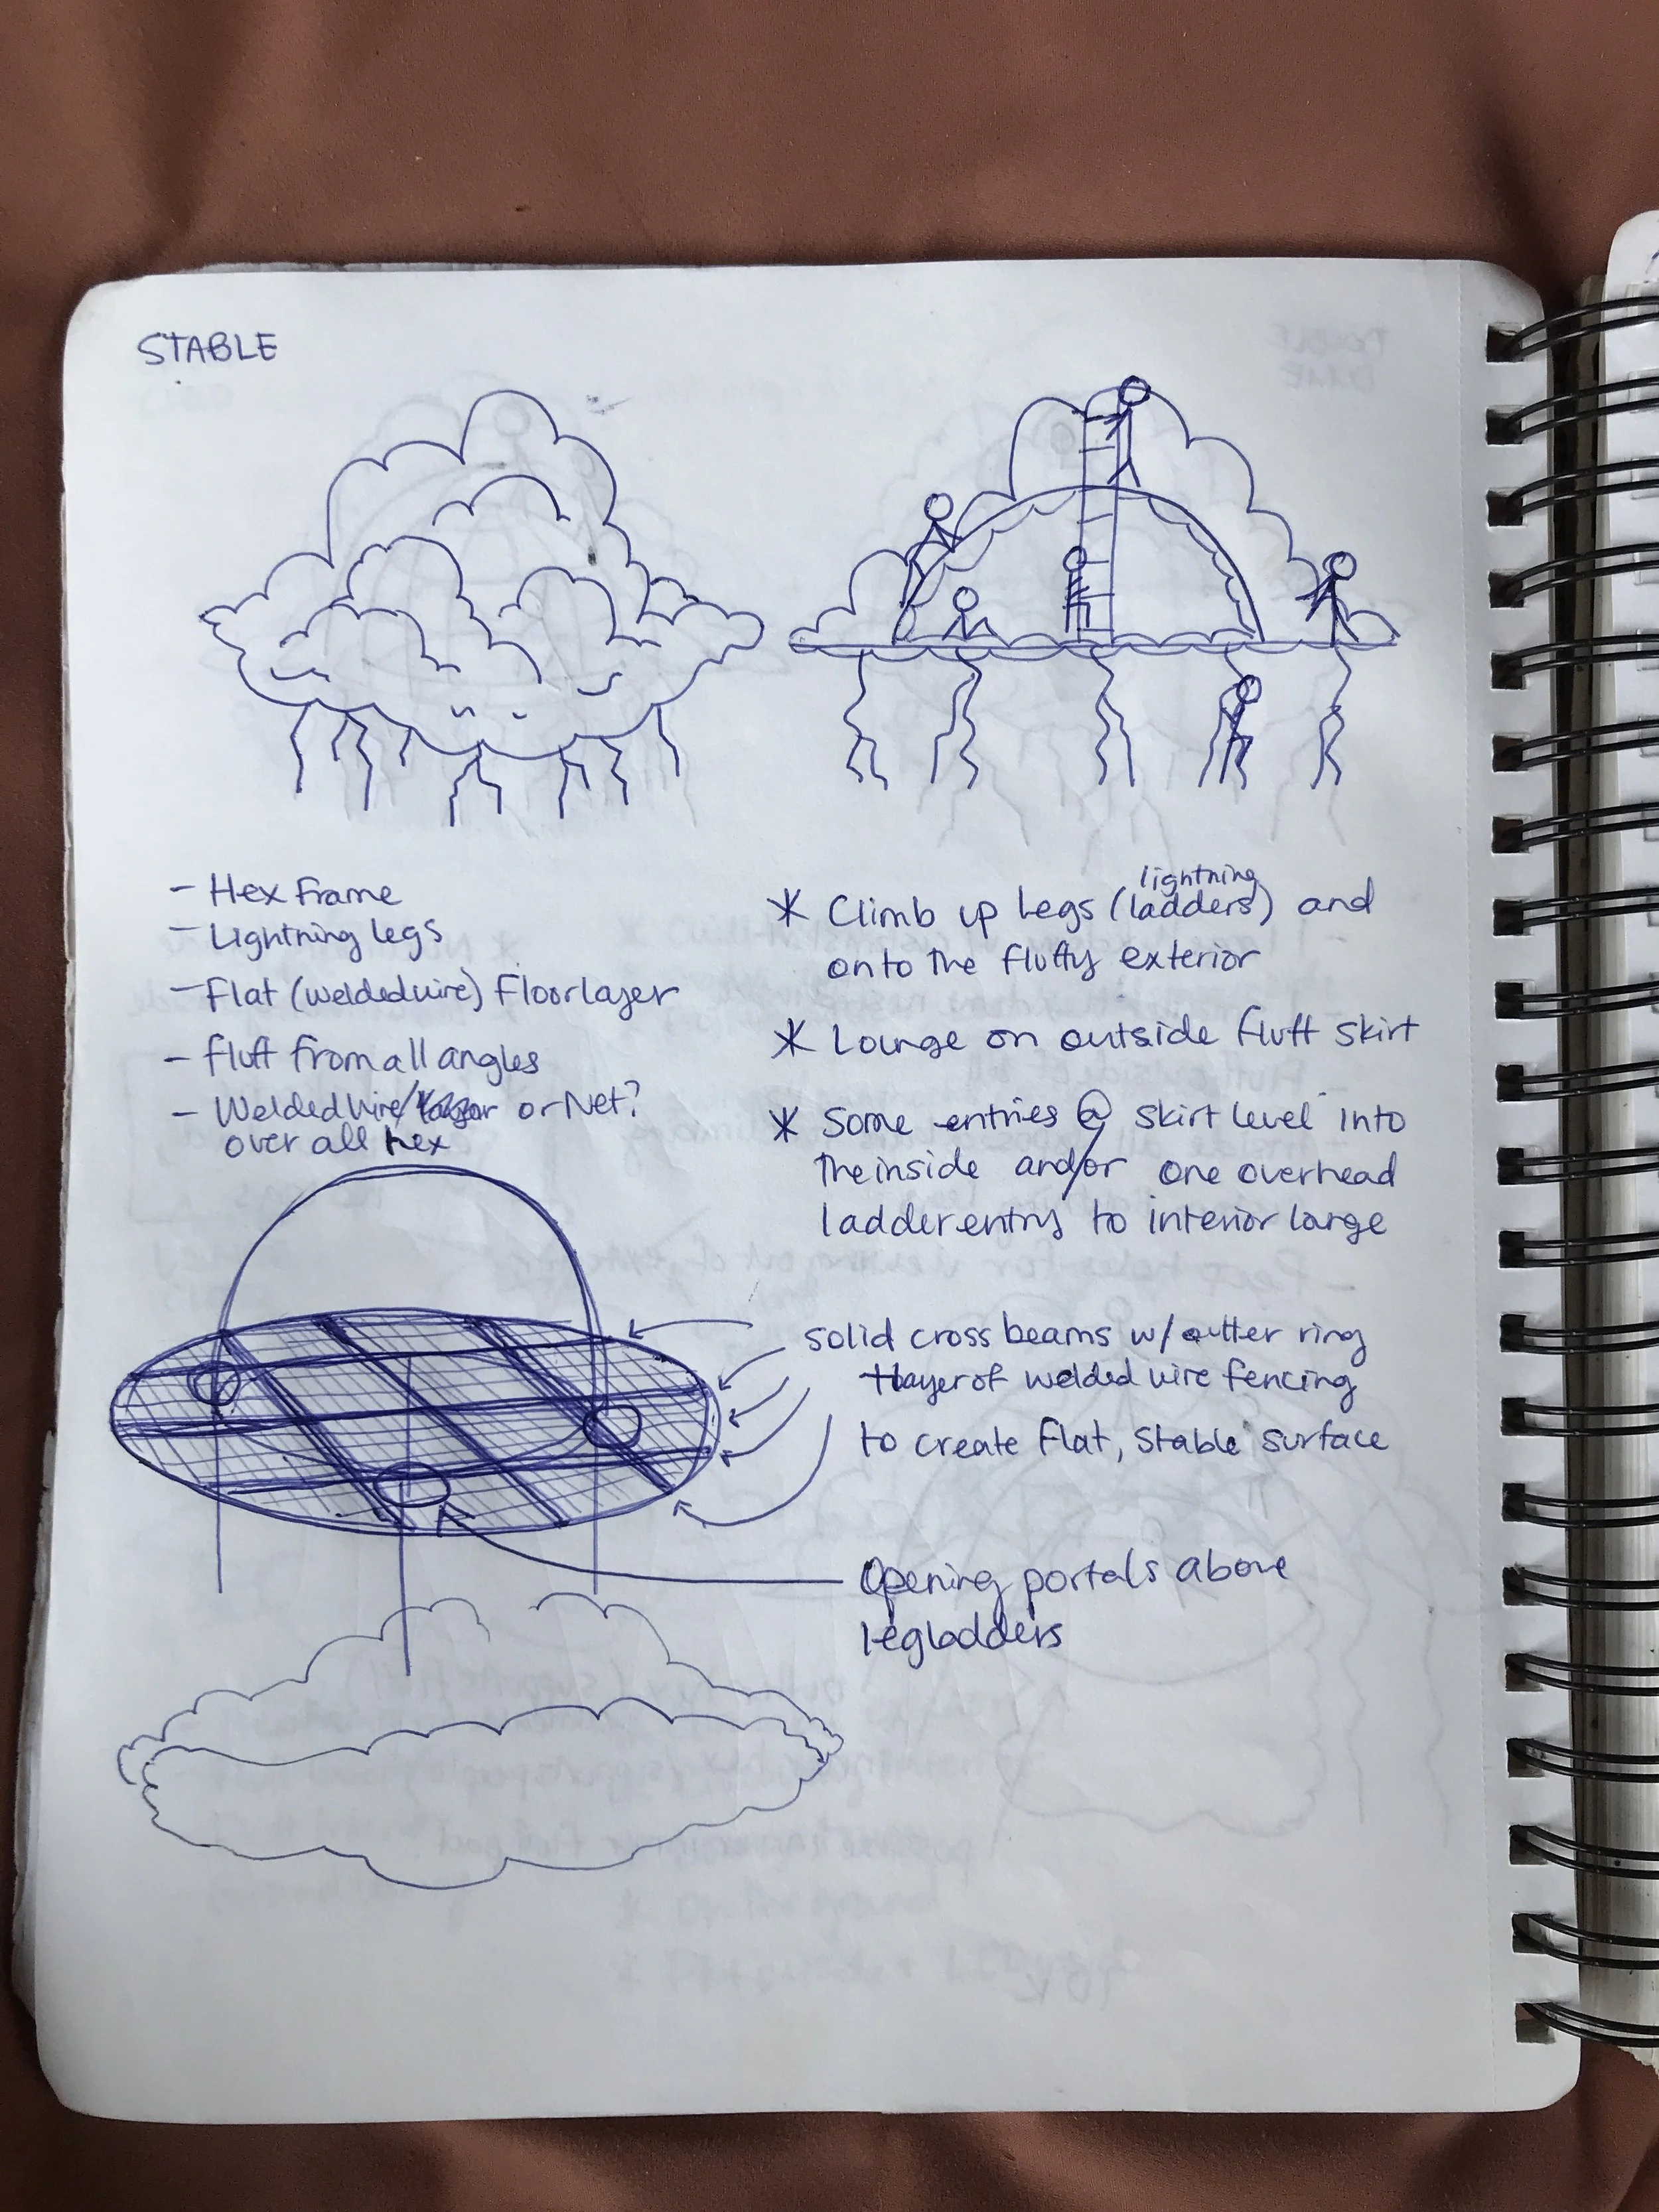 STABLE
- Hex Frame
- Lightning legs
- Flat (welded wire) Floor layer
- fluff from all angles
- Welded wire/ or Net?
over all hex
* Climb up legs (lightning ladders) and
onto the fluffy exterior
* Lounge on outside fluff skirt
* Some entries @ skirt level into
the inside and/or one overhead
ladder entry to interior large
solid cross beams w/ outter ring
+ layer of welded wire fencing
to create flat, stable surface
Opening portals above
leg ladders